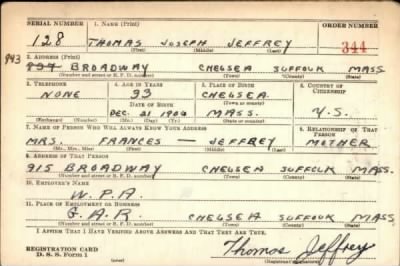 SERIAL NUMBER 1. NAME (Print) ORDER NUMBER
128 THOMAS JOSEPH JEFFREY 344
(First) (Middle) (Last)
2. ADDRESS (Print)
943 BROADWAY CHELSEA SUFFOLK MASS
(Number and street or R. F. D. number) (Town) (County) (State)
3. TELEPHONE 4. AGE IN YEARS 5. PLACE OF BIRTH 6. COUNTRY OF CITIZENSHIP
NONE 35 CHELSEA
(Town or county)
DATE OF BIRTH
DEC. 21 1904 MASS. U.S.
(Exchange) (Number) (Mo.) (Day) (Yr.) (State or country)
7. NAME OF PERSON WHO WILL ALWAYS KNOW YOUR ADDRESS 8. RELATIONSHIP OF THAT PERSON
MRS. FRANCES — JEFFREY MOTHER
(Mr., Mrs., Miss) (First) (Middle) (Last)
9. ADDRESS OF THAT PERSON
915 BROADWAY CHELSEA SUFFOLK MASS
(Number and street or R. F. D. number) (Town) (County) (State)
10. EMPLOYER'S NAME
W.P.A.
11. PLACE OF EMPLOYMENT OR BUSINESS
G.A.R. CHELSEA SUFFOLK MASS
(Number and street or R. F. D. number) (Town) (County) (State)
I AFFIRM THAT I HAVE VERIFIED ABOVE ANSWERS AND THAT THEY ARE TRUE.
REGISTRATION CARD
D. S. S. Form 1
Thomas Jeffrey
(Registrant's signature)